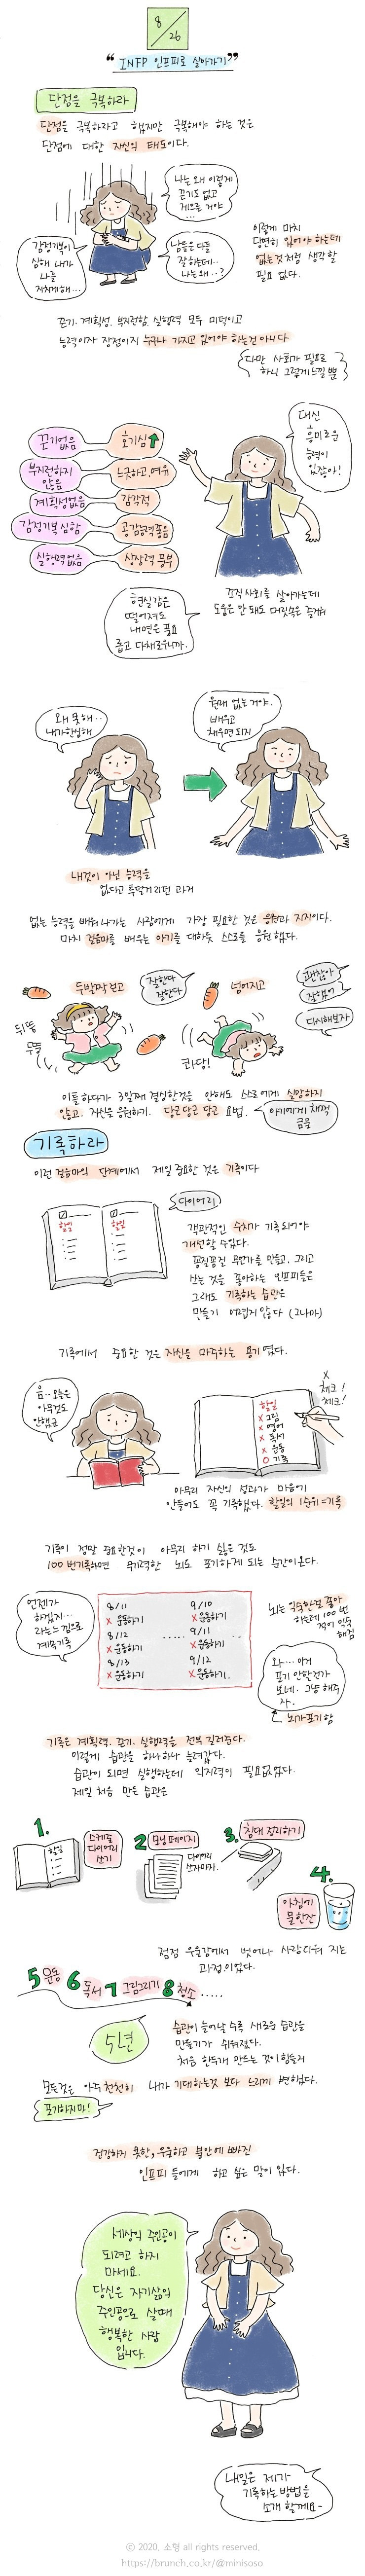 8/26
"INFP 인프피로 살아가기"
단점을 극복하라
단점을 극복하라고 했지만 극복해야 하는 것은
단점에 대한 자신의 태도이다.
나는 왜 이렇게
끈기도 없고
게으른 거야
...
감정기복이
심해 내가
나를
지치게해...
남들은 다들
잘 하는데..
나는 왜..?
이렇게 마치
당연히 있어야 하는데
없는것처럼 생각할
필요 없다.
끈기. 계획성. 부지런함. 실행력 모두 미덕이고
능력이자 장점이지 누구나 가지고 있어야 하는건 아니다
다만 사회가 필요로
하니 그렇게 느낄 뿐
대신
흥미로운
능력이
있잖아!
끈기없음
호기심↑
부지런하지
않음
느긋하고, 여유
계획성없음
감각적
감정기복 심함
공감능력좋음
실행력 없음
상상력 풍부
현실감은
떨어져도
내면은 풍요
롭고 다채로우니까.
조직사회를 살아가는데
도움은 안 돼도
왜 못해..
내가 한심해
원래 없는거야.
배우고
채우면 되지
내것이 아닌 능력을
없다고 투덜거리던 과거
없는 능력을 배워 나가는 사람에게 가장 필요한 것은 응원과 지지이다.
마치 걸음마를 배우는 아기를 대하듯 스스로를 응원했다.
두발짝 걷고
잘한다
잘한다
넘어지고
괜찮아
잘했어
다시해보자
뒤뚱
뚜뚤
콰당!
이틀 하다가 3일째 결심한것을 안해도 스스로에게 실망하지
않고. 자신을 응원하기. 당근 당근 당근 요법.
아기에게 채찍
금물
기록하라
이런 걸음마의 단계에서 제일 중요한 것은 기록이다
할일
할일
다이어리
객관적인 수치가 기록되어야
개선할 수 있다.
꼼질꼼질 무언가를 만들고, 그리고
쓰는 것을 좋아하는 인프피들은
그래도 기록하는 습관은
만들기 어렵지 않다 (그나마)
기록에서 중요한 것은 자신을 마주하는 용기였다.
음.. 오늘은
아무것도
안했군
할일
X 그림
X 영어
X 독서
X 운동
O 기록
X
체크!
체크!
아무리 자신의 성과가 마음에
안들어도 꼭 기록했다. 할일의 1순위=기록
기록이 정말 중요한것이 아무리 하기 싫은 것도
100번기록하면 무기력한 뇌도 포기하게 되는 순간이온다.
언젠가
하겠지...
라는 느낌으로
계속기록
8/11
X 운동하기
8/12
X 운동하기
8/13
X 운동하기
.....
9/10
X 운동하기
9/11
X 운동하기
9/12
X 운동하기.
..
뇌는 익숙한걸 좋아
하는데 100번
적어 익숙
해짐
와... 이거
포기 안할건가
보네. 그냥 해주
자.
뇌가 포기함
기록은 계획력. 끈기. 실행력을 전부 길러준다.
이렇게 습관을 하나하나 늘려갔다.
습관이 되면 실행하는데 의지력이 필요없었다.
제일 처음 만든 습관은
1.
할일
스케줄
다이어리
쓰기
2
모닝 페이지
다이어리
쓰자마자.
3.
침대 정리하기
4.
아침에
물 한잔
점점 우울감에서 벗어나 사람다워 지는
과정이었다.
5 운동 6 독서 7 그림그리기 8 청소 .....
5년
습관이 늘어날 수록 새로운 습관을
만들기가 쉬워졌다.
처음 한두개 만드는 것이 힘들지
모든것은 아주 천천히 내가 기대하는것 보다 느리게 변했다.
포기하지마!
건강하지 못한, 우울하고 불안에 빠진
인프피 들에게 하고 싶은 말이 있다.
세상의 주인공이
되려고 하지
마세요.
당신은 자기삶의
주인공으로 살때
행복한 사람
입니다.
내일은 제가
기록하는 방법을
소개 할게요~
© 2020. 소형 all rights reserved.
https://brunch.co.kr/@minisoso